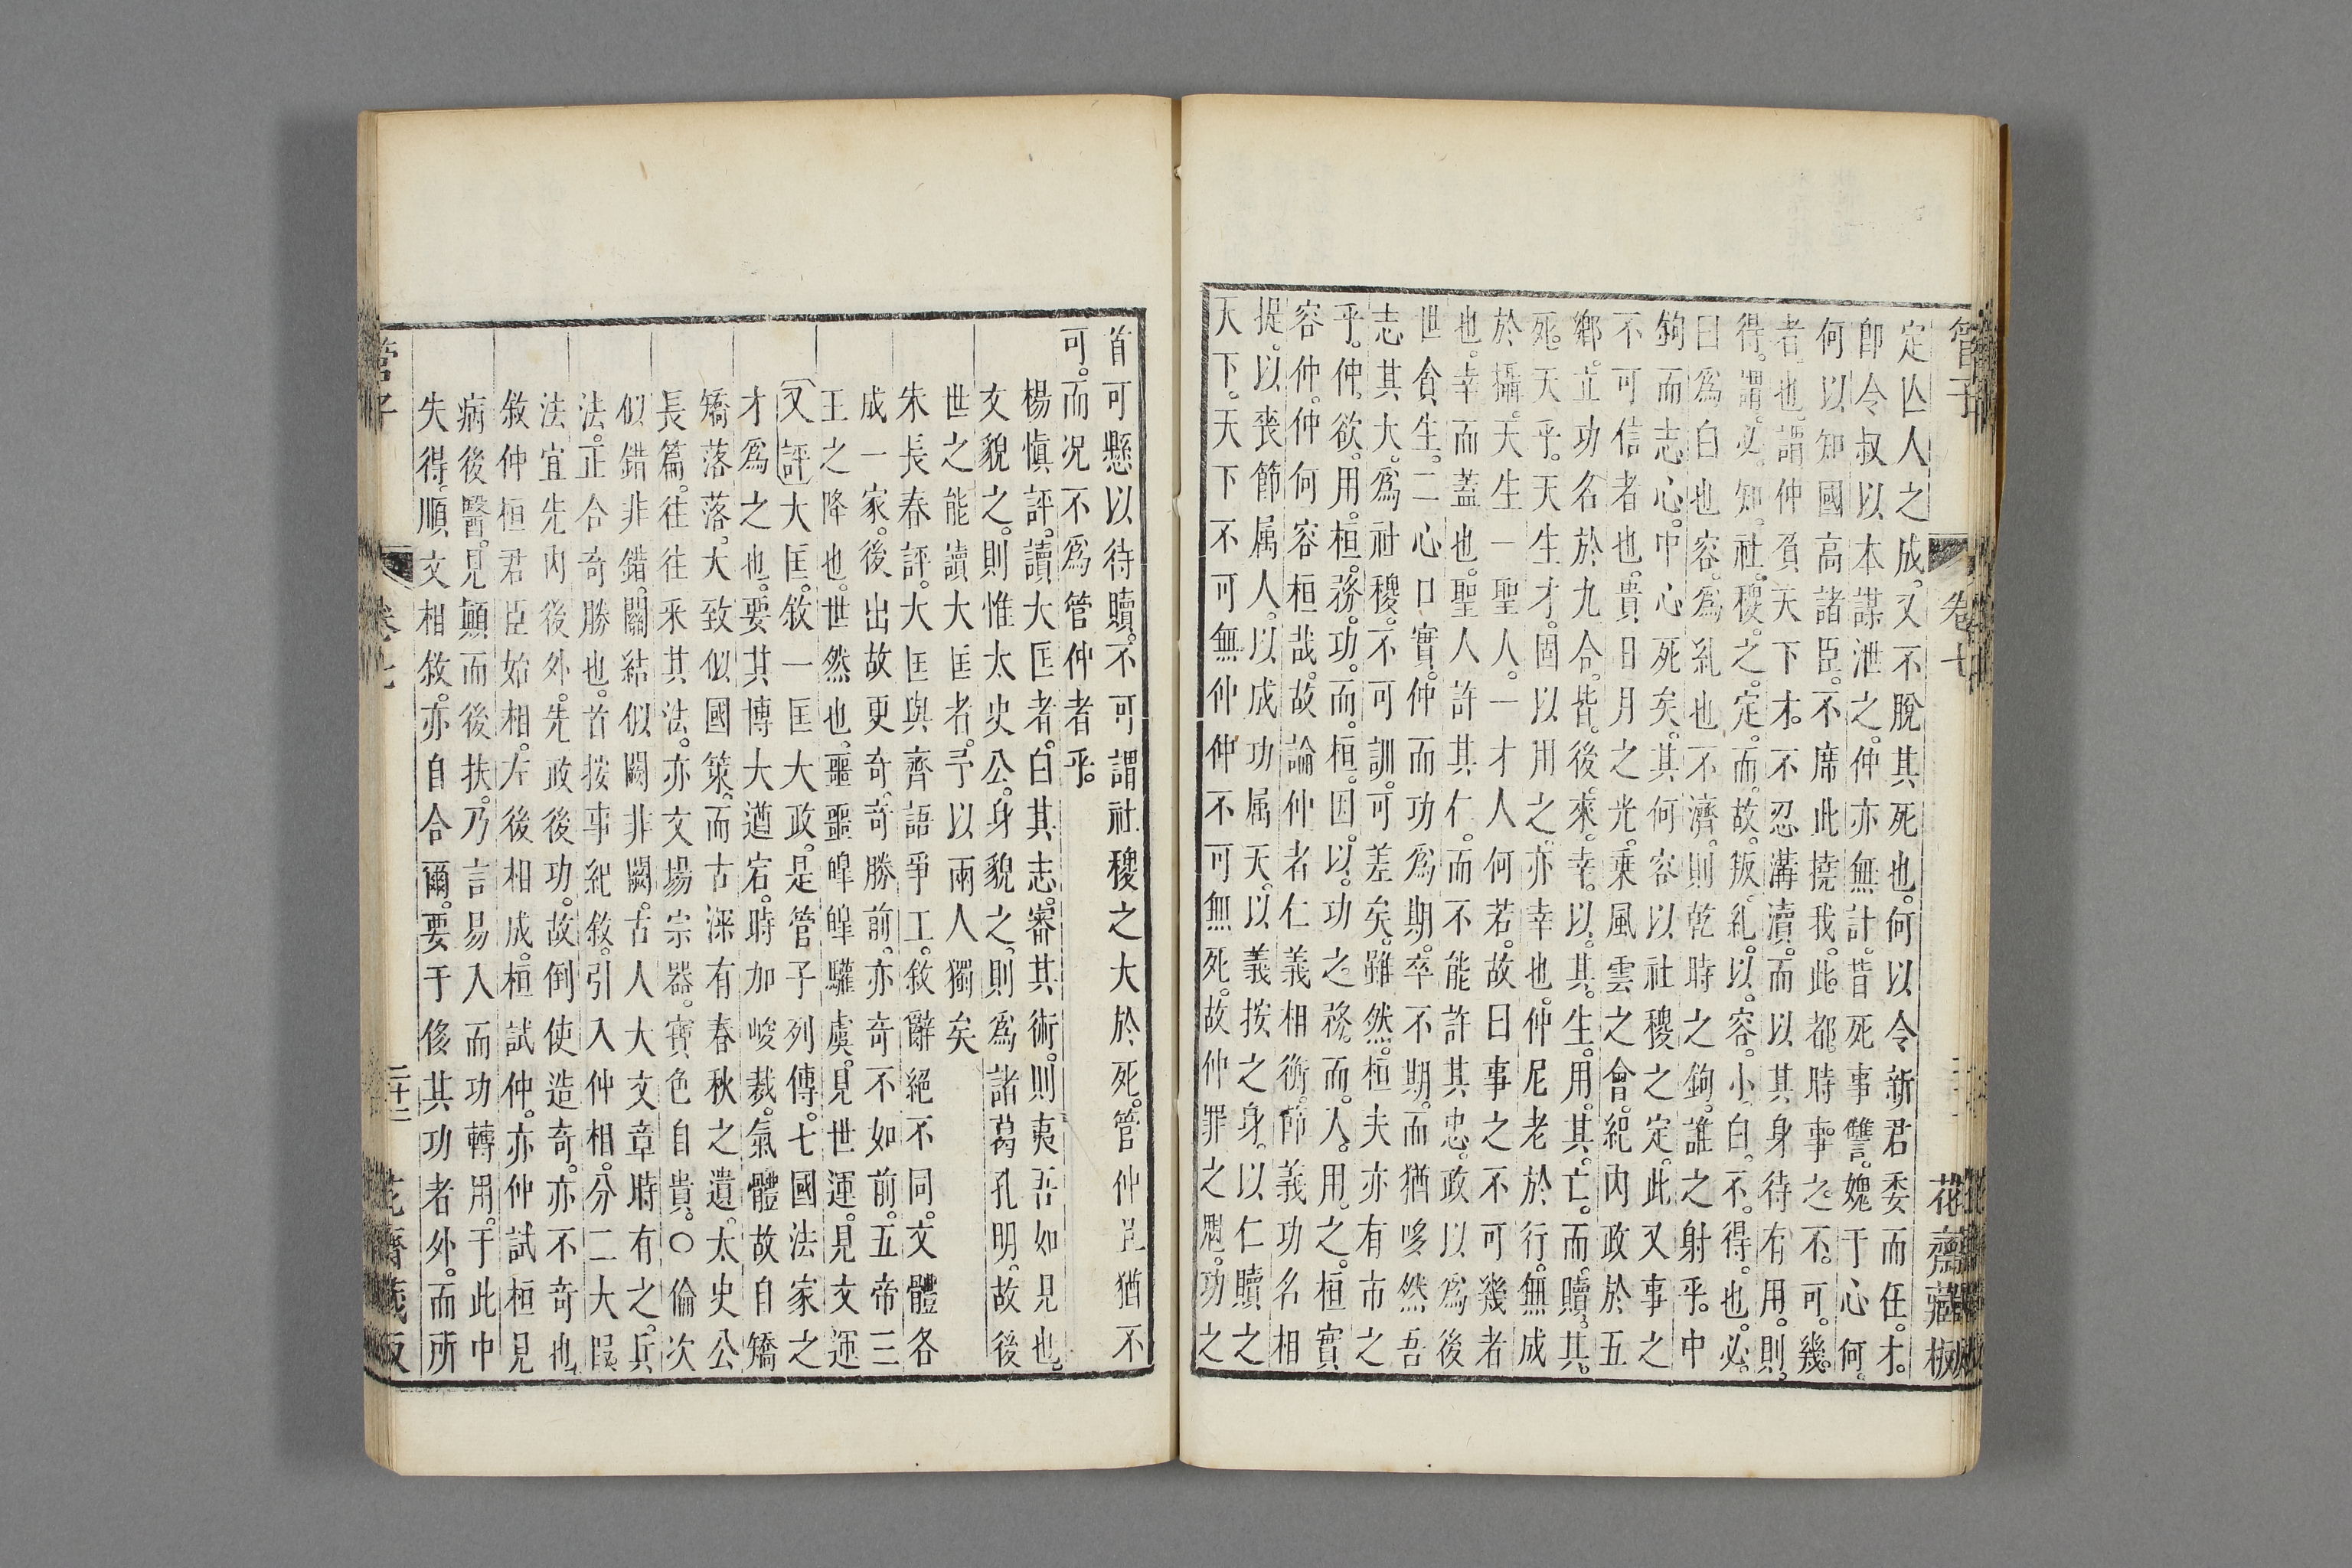 管子
卷七
花齋藏板
定囚人之成又不脫其死也何以令新君委而任才
卽令叔以本謀泄之仲亦無計昔死事讐媿于心何
何以知國高諸臣不席此撓我此都時事之不可幾
者也謂仲負天下才不忍溝瀆而以其身待有用則
得謂必知社稷之定而故叛糺以容小白不得也必
曰爲白也容爲糺也不濟則乾時之鉤誰之射乎中
鉤而志心中心死矣其何容以社稷之定此又事之
不可信者也貴日月之光乗風雲之會紀內政於五
鄉立功名於九合皆後來幸以其生用其亡而贖其
死天乎天生才固以用之亦幸也仲尼老於行無成
於攝天生一聖人一才人何若故曰事之不可幾者
也幸而蓋也聖人許其仁而不能許其忠政以爲後
世貪生二心口實仲而功爲期卒不期而猶哆然吾
志其大爲社稷不可訓可差矣雖然桓夫亦有市之
乎仲欲用桓務功而桓因以功之務而人用之桓實
容仲仲何容桓哉故論仲者仁義相衡節義功名相
提以喪節属人以成功属天以義按之身以仁贖之
天下天下不可無仲仲不可無死故仲罪之魁功之
首可懸以待贖不可謂社稷之大於死管仲且猶不
可而況不爲管仲者乎
楊愼評讀大匡者白其志審其術則夷吾如見也
文貌之則惟太史公身貌之則爲諸葛孔明故後
世之能讀大匡者予以兩人獨矣
朱長春評大匡與齊語爭工敘辭絕不同文體各
成一家後出故更奇奇勝前亦奇不如前五帝三
王之降也世然也噩噩皥皥驩虞見世運見文運
又評大匡敘一匡大政是管子列傳七國法家之
才爲之也要其博大遒宕時加峻裁氣體故自矯
矯落落大致似國策而古深有春秋之遺太史公
長篇往往釆其法亦文場宗器寶色自貴○倫次
似錯非錯關結似闕非闕古人大文章時有之兵
法正合奇勝也首按事紀敘引入仲相分二大叚
法宜先內後外先政後功故倒使造奇亦不奇也
敘仲桓君臣始相左後相成桓試仲亦仲試桓見
病後醫見顚而後扶乃言易入而功轉用于此中
失得順文相敘亦自合爾要于俢其功者外而所
管子
卷七
二十二
花齋藏板